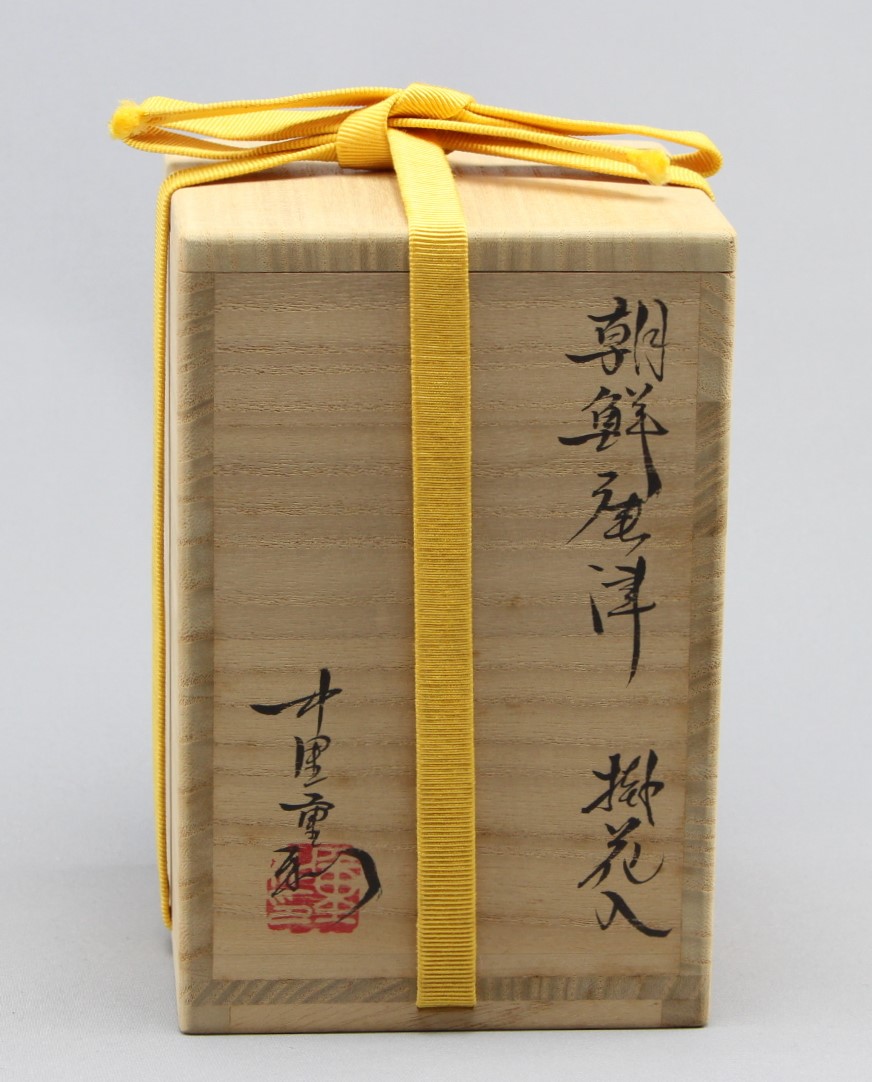 朝鮮唐津 掛花入
中里重利